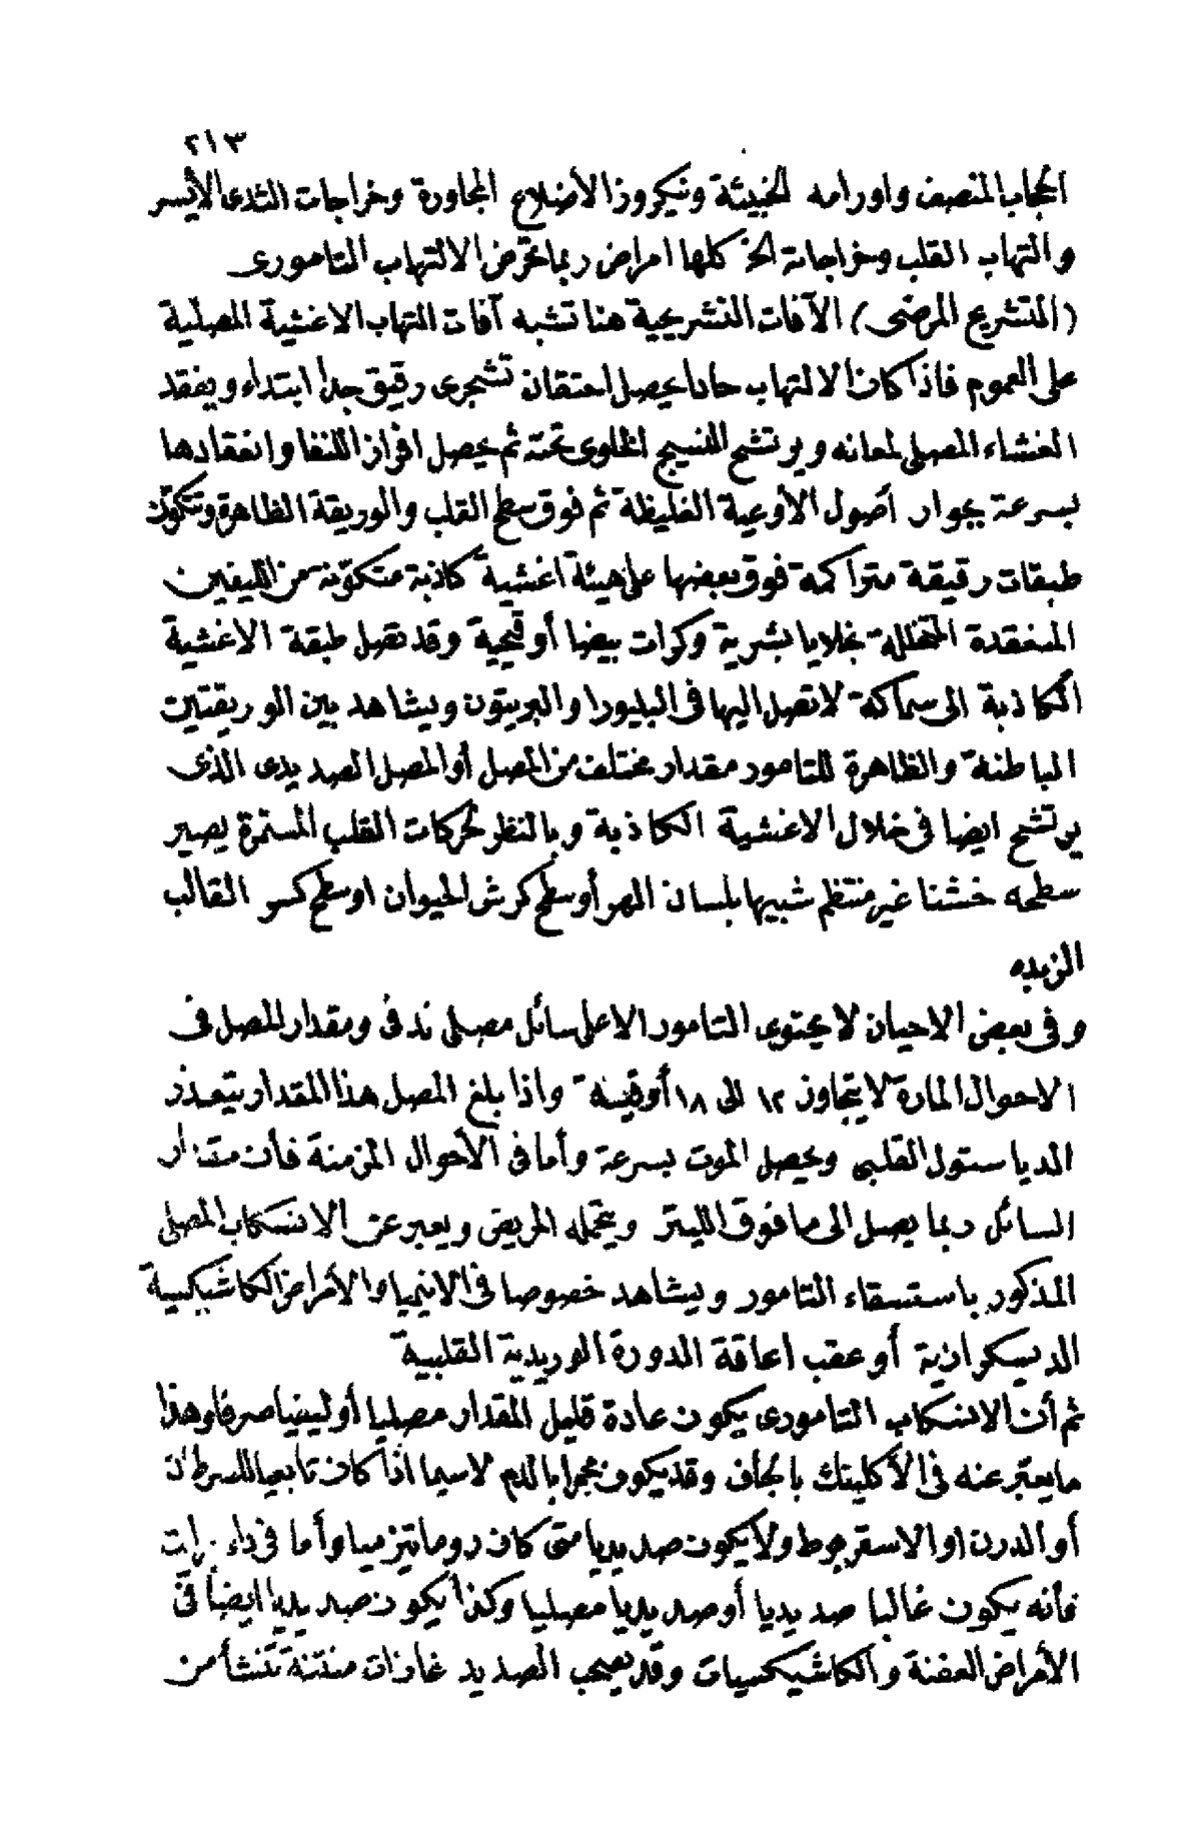 ٢١٣
الحجاب المنصف واورامه الخبيثة ونيكروز الأضلاع المجاورة وخراجات الثدى الأيسر
والتهاب القلب وخراجاته الخ كلها امراض ربما تحرض الالتهاب التامورى
(التشريح المرضى) الآفات التشريحية هنا تشبه آفات التهاب الاغشية المصلية
على العموم فاذا كان الالتهاب حادا يحصل احتقان تشجرى رقيق جدا ابتداء ويفقد
الغشاء المصلى لمعانه ويرتشح النسيج الخلوى تحته ثم يحصل افراز اللنفا وانعقادها
بسرعة بجوار أصول الأوعية الغليظة ثم فوق سطح القلب والوريقة الظاهرة وتتكوّن
طبقات رقيقة متراكمة فوق بعضها على هيئة اغشية كاذبة متكوّنة من الليفين
المنعقدة المتخللة بخلايا بشرية وكرات بيضا أو قيحية وقد تصل طبقة الاغشية
الكاذبة الى سماكة لا تصل اليها فى البليورا والبريتون ويشاهد بين الوريقتين
الباطنة والظاهرة للتامور مقدار مختلف من المصل أو المصل الصديدى الذى
يرتشح ايضا فى خلال الاغشية الكاذبة وبالنظر لحركات القلب المستمرة يصير
سطحه خشنا غير منتظم شبيها بلسان الهر أو سطح كرش الحيوان او سطح كسر القالب
الزبده
وفى بعض الاحيان لا يحتوى التامور الا على سائل مصلى ندفى ومقدار المصل فى
الاحوال الحادة لا يتجاوز ١٢ الى ١٨ أوقية واذا بلغ المصل هذا المقدار يتعذر
الدياستول القلبى ويحصل الموت بسرعة وأما فى الأحوال المزمنة فأن مقدار
السائل ربما يصل الى ما فوق الليتر ويتحمله المريض ويعبر عن الانسكاب المصلى
المذكور باستسقاء التامور ويشاهد خصوصا فى الانيميا والأمراض الكاشيكسية
الديسكرازية أو عقب اعاقة الدورة الوريدية القلبية
ثم أن الانسكاب التامورى يكون عادة قليل المقدار مصليا أو ليفيا صرفا وهذا
ما يعبر عنه فى الأكلينك بالجاف وقد يكون محمرا بالدم لاسيما اذا كان تابعيا للسرطان
أو الدرن او الاسقربوط ولا يكون صديديا متى كان روماتيزميا وأما فى داء برايت
فأنه يكون غالبا صديديا أو صديديا مصليا وكذا يكون صديديا ايضا فى
الأمراض العفنة والكاشيكسيات وقد يصحب الصديد غازات منتنة تنشأ من